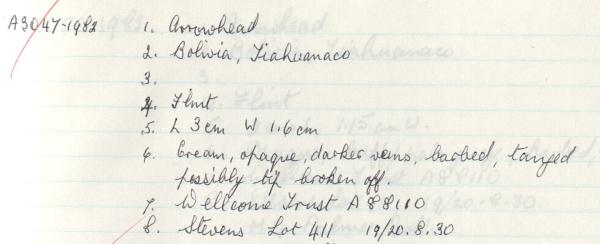 A3047-1982 1. Arrowhead
2. Bolivia, Tiahuanaco
3.
4. Flint
5. L 3cm W 1.6cm
6. Cream, opaque, darker veins, barbed, tanged
possibly tip broken off.
7. Wellcome Trust A88110
8. Stevens Lot 411 19/20.8.30